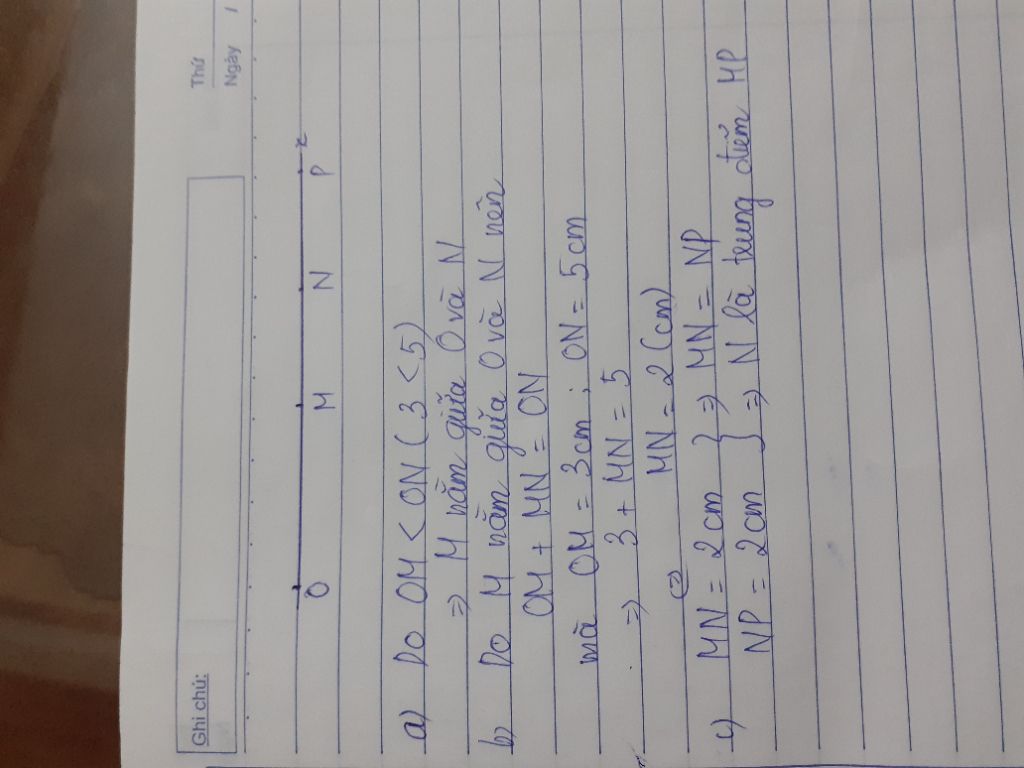 Thứ
Ngày /
Ghi chú:
O M N P x
a) Do OM < ON (3 < 5)
=> M nằm giữa O và N
b) Do M nằm giữa O và N nên
OM + MN = ON
mà OM = 3cm ; ON = 5cm
=> 3 + MN = 5
<=> MN = 2 (cm)
c) MN = 2cm } => MN = NP
NP = 2cm } => N là trung điểm MP